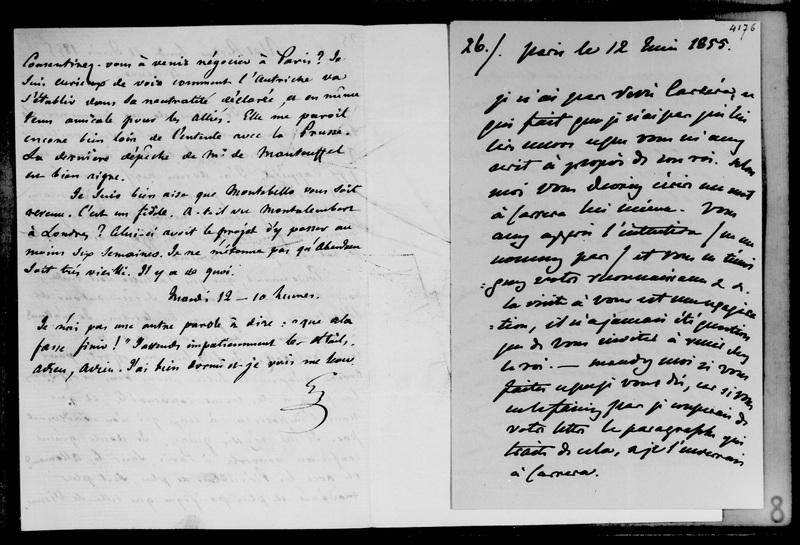 Consentirez-vous à venir négocier à Paris? Je
suis curieux de voir comment l'Autriche va
s'établir dans sa neutralité déclarée, et en même
tems amicale pour les alliés. Elle me paroit
encore bien loin de l'entente avec la Prusse.
La dernière dépêche de Mr de Manteuffel
est bien aigre.
Je suis bien aise que Montebello vous soit
revenu. C'est un fidèle. A-t-il vu Montalembert
à Londres? Celui-ci avoit le projet d'y passer au
moins six semaines. Je ne m'étonne pas qu'Aberdeen
soit très vieilli. Il y a de quoi.
Mardi 12 - 10 heures.
Je n'ai pas une autre parole à dire: "que cela
finisse!" J'attends impatiemment les détails.
Adieu, adieu. J'ai bien dormi et je vais me lever.
G
4176
26./. Paris le 12 Juin 1855.
je n'ai pas revu Carrera, ce
qui fait que je n'ai pas pu lui
lire encore ce que vous m'avez
écrit à propos de son roi. Selon
moi vous devriez écrire un mot
à Carrera lui même. Vous
avez appris l'intention (ne me
nommez pas) et vous en
votre reconnaissance &
la visite à vous est une
tion, il n'a jamais été question
que de vous inviter à venir chez
le roi. — mandez moi si vous
faites ce que je vous dis, car si vous
ne le faisiez pas je couperais de
votre lettre le paragraphe qui
traite de cela, et je l'enverrais
à Carrera.
8